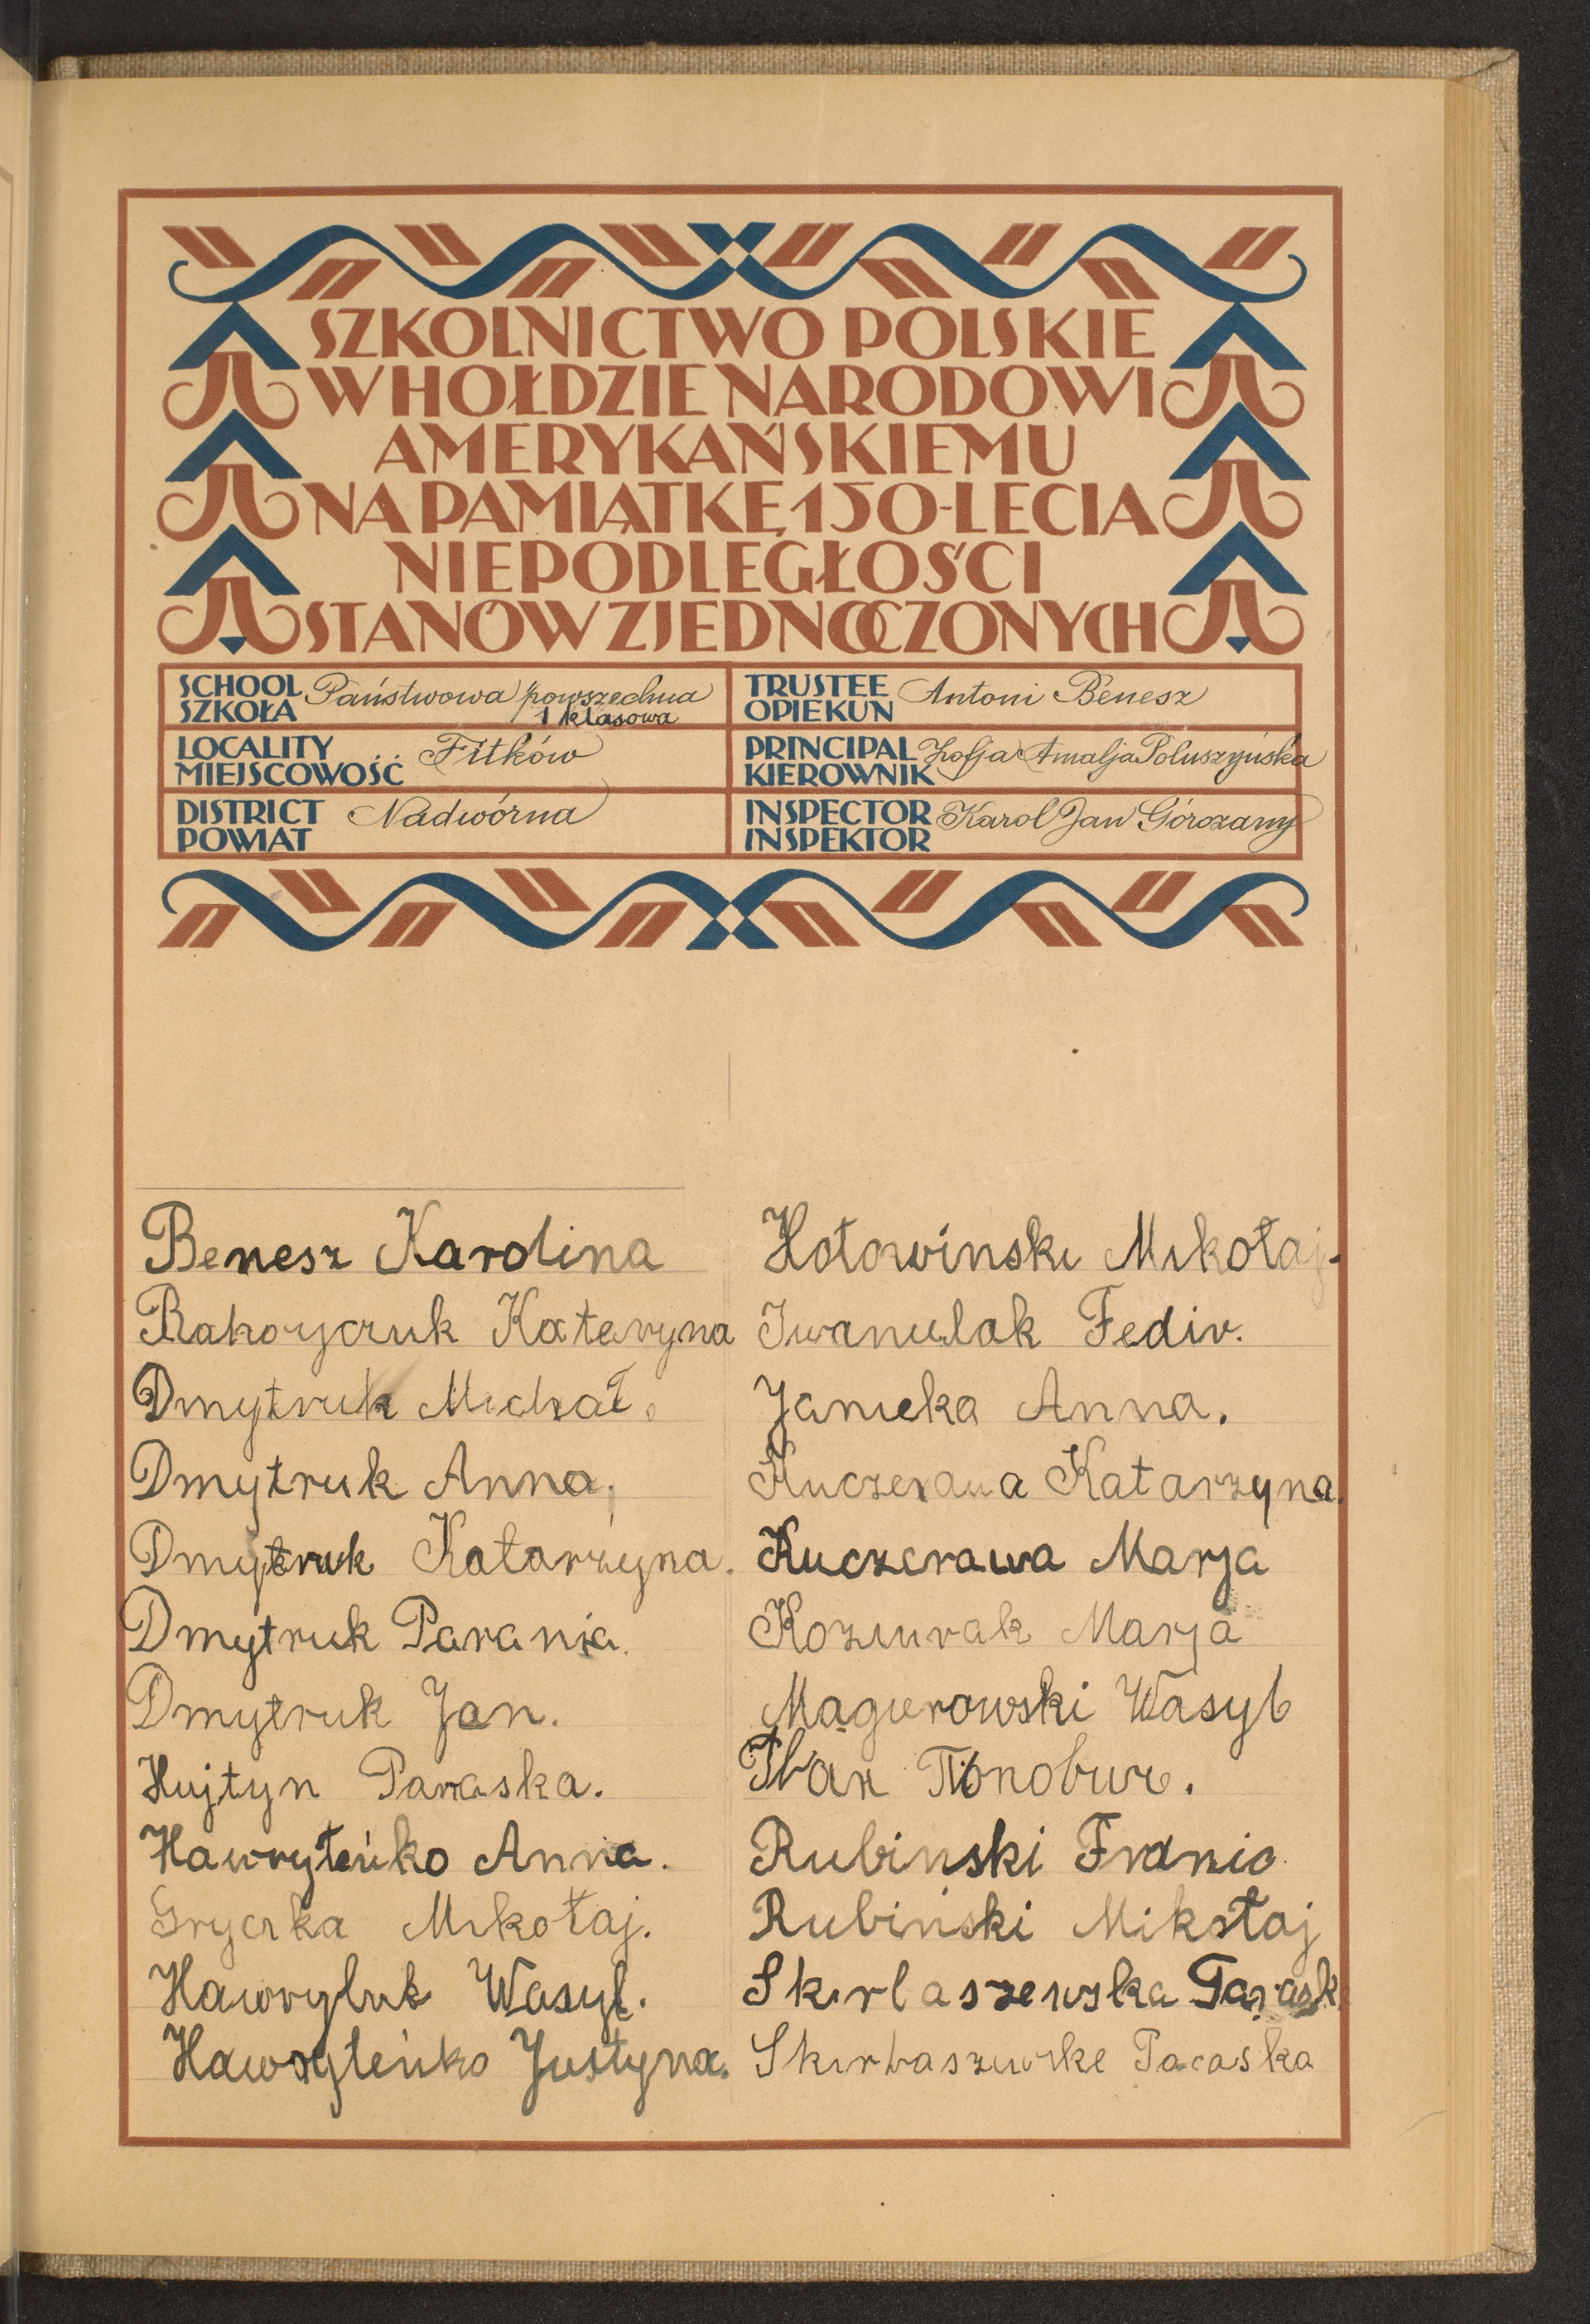 SZKOLNICTWO POLSKIE
W HOŁDZIE NARODOWI
AMERYKAŃSKIEMU
NA PAMIĄTKĘ 150-LECIA
NIEPODLEGŁOŚCI
STANÓW ZJEDNOCZONYCH
SCHOOL
SZKOŁA
Państwowa powszechna
1 klasowa
TRUSTEE
OPIEKUN
Antoni Benesz
LOCALITY
MIEJSCOWOŚĆ
Fitków
PRINCIPAL
KIEROWNIK
Zofja Amalja Poluszyńska
DISTRICT
POWIAT
Nadwórna
INSPECTOR
INSPEKTOR
Karol Jan Górozany
Benesz Karolina
Kateryna
Dmytruk Michał.
Dmytruk Anna.
Dmytruk Katarzyna.
Dmytruk Parania.
Dmytruk Jan.
Hujtyn Paraska.
Hawryłeńko Anna.
Gryczka Mikołaj.
Hawryluk Wasyl.
Hawryłeńko Justyna.
Hołowinski Mikołaj.
Iwanulak Fediv.
Janicka Anna.
Kuczerawa Katarzyna.
Kuczerawa Marja
Marja
Magierowski Wasyl
Rubinski Franio
Rubiński Mikołaj
Skirlaszewska Parask
Paraska